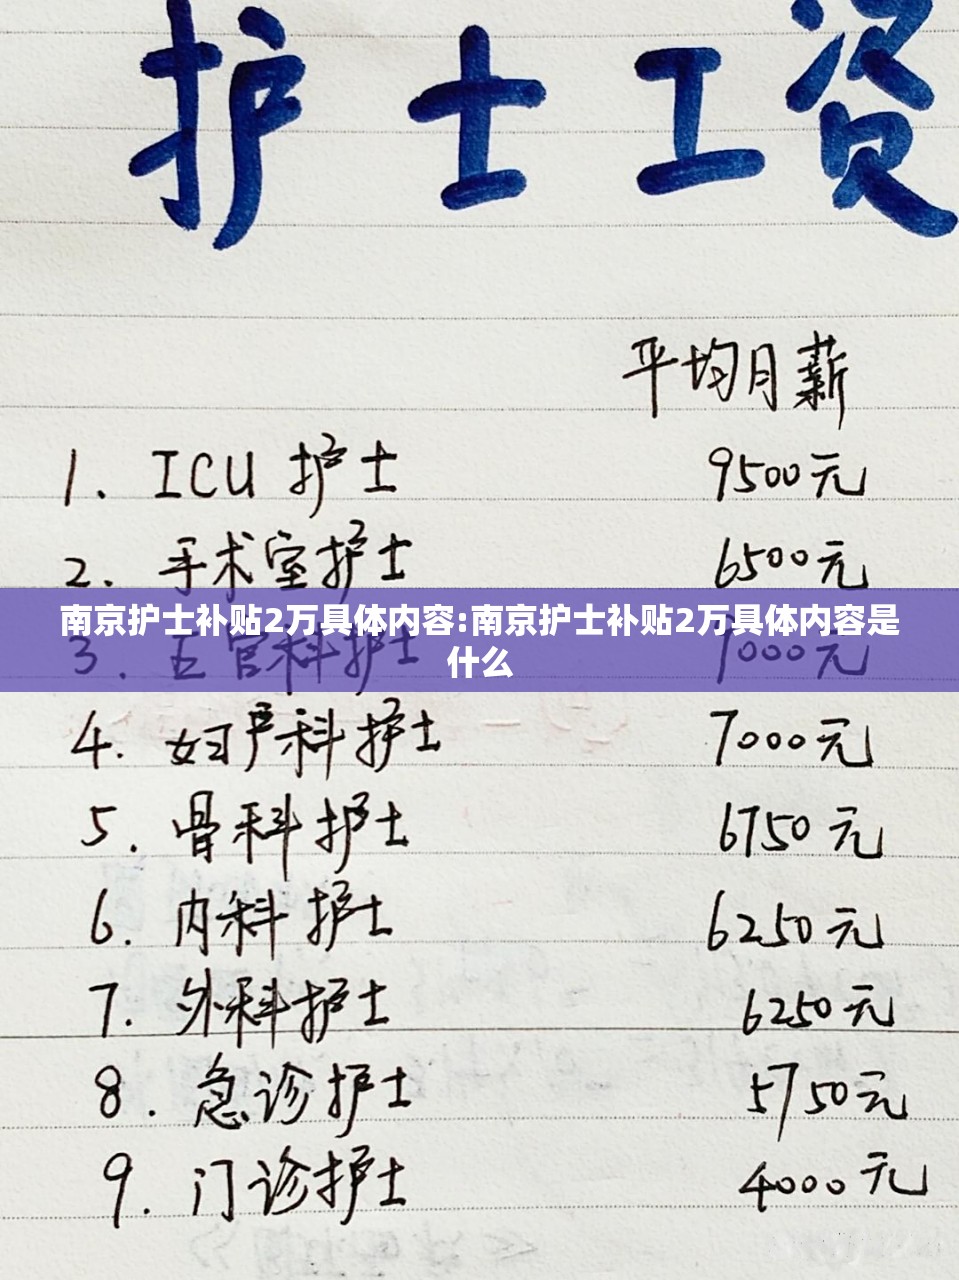 护士工资
平均月薪
1. ICU 护士 9500元
2. 手术室护士 6500元
南京护士补贴2万具体内容:南京护士补贴2万具体内容是
什么
3. 五官科护士 7000元
4. 妇产科护士 7000元
5. 骨科护士 6750元
6. 内科护士 6250元
7. 外科护士 6250元
8. 急诊护士 5750元
9. 门诊护士 4000元